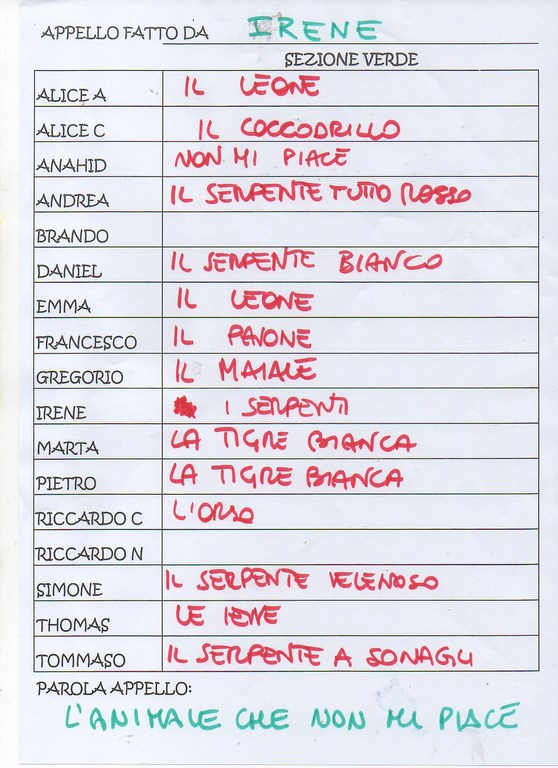 APPELLO FATTO DA IRENE
SEZIONE VERDE
ALICE A IL LEONE
ALICE C IL COCCODRILLO
ANAHID NON MI PIACE
ANDREA IL SERPENTE TUTTO ROSSO
BRANDO
DANIEL IL SERPENTE BIANCO
EMMA IL LEONE
FRANCESCO IL PAVONE
GREGORIO IL MAIALE
IRENE I SERPENTI
MARTA LA TIGRE BIANCA
PIETRO LA TIGRE BIANCA
RICCARDO C L'ORSO
RICCARDO N
SIMONE IL SERPENTE VELENOSO
THOMAS LE IENE
TOMMASO IL SERPENTE A SONAGLI
PAROLA APPELLO:
L'ANIMALE CHE NON MI PIACE